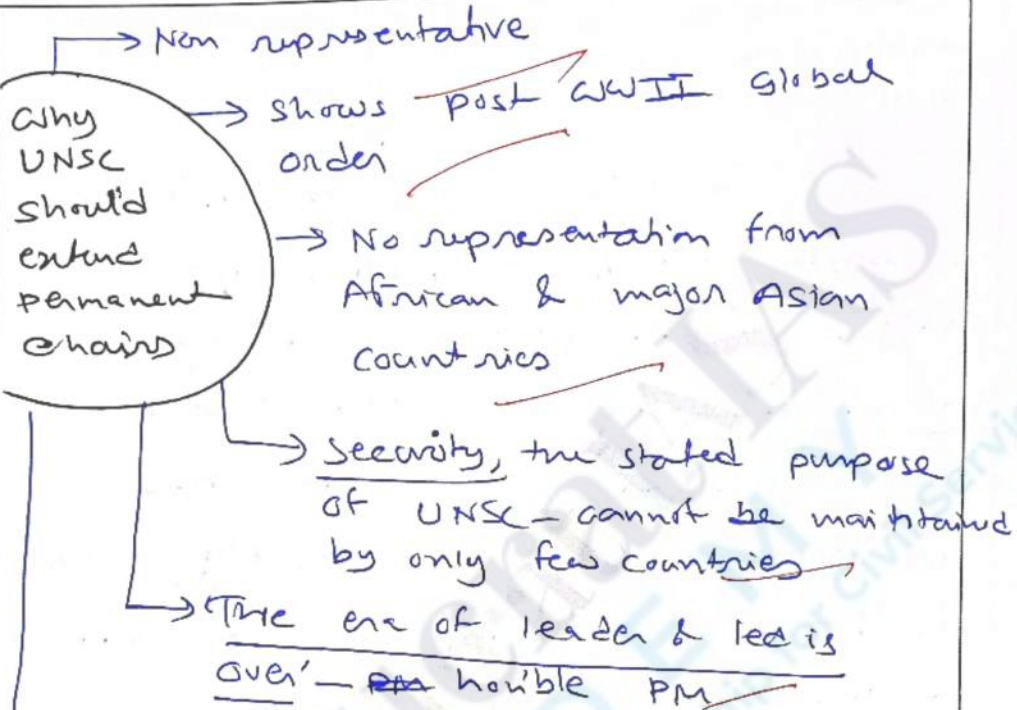 Why
UNSC
should
extend
permanent
chairs
→ Non representative
→ shows post WWII global
order
→ No representation from
African & major Asian
countries
→ Security, the stated purpose
of UNSC - cannot be maintained
by only few countries
→ 'The era of leader & led is
over' - hon'ble PM